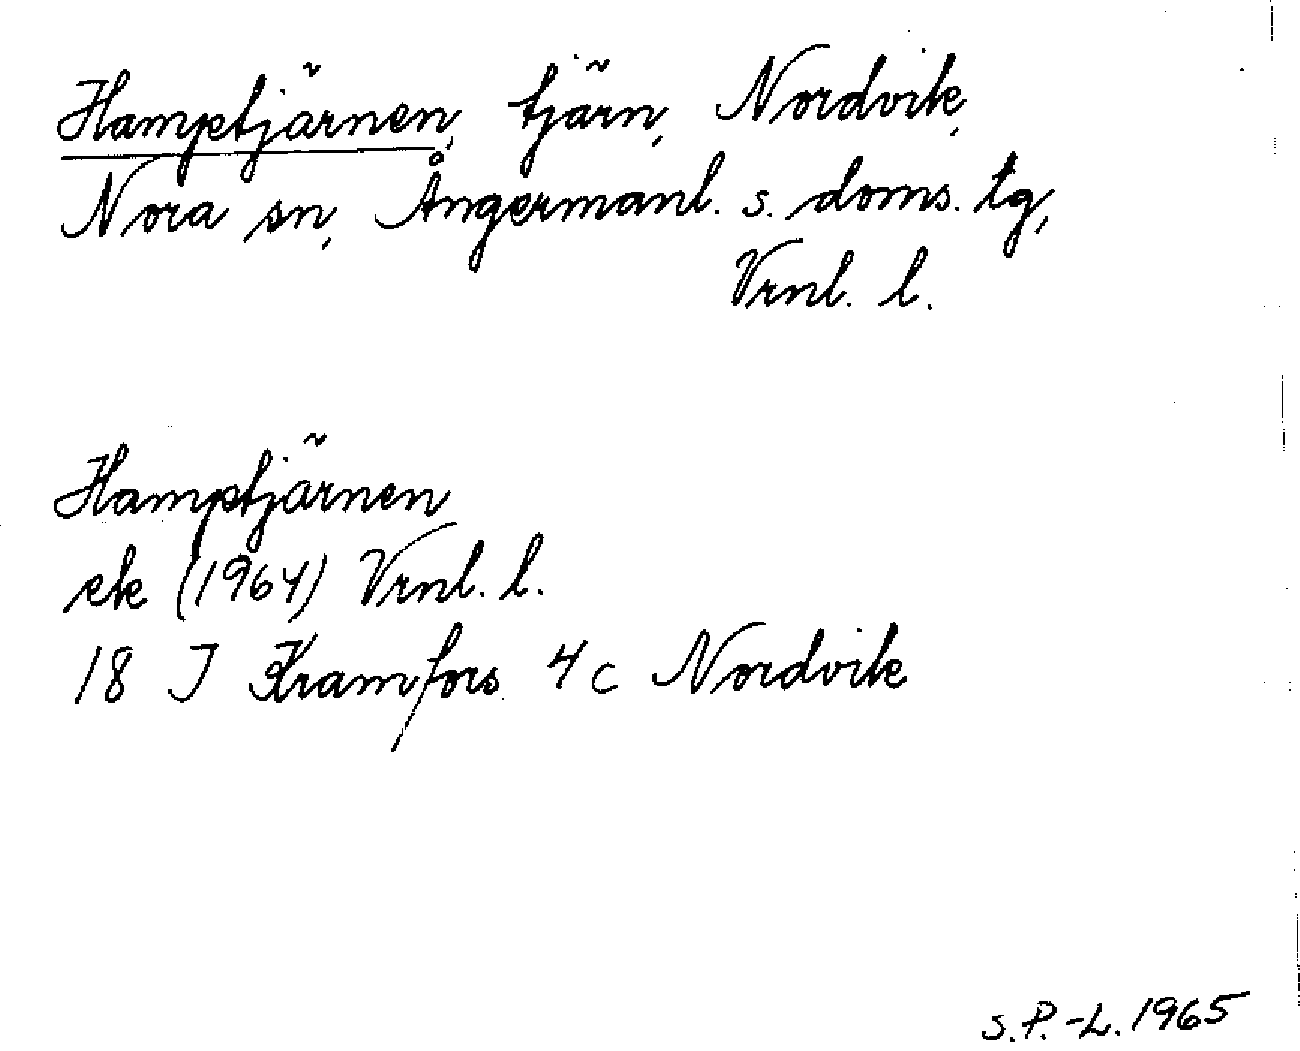 Hamptjärnen, tjärn, Nordvik,
Nora sn, Ångermanl. s. doms. tg,
Vrnl. l.
Hamptjärnen
ek (1964) Vrnl. l.
18 J Kramfors 4c Nordvik
S.P.-L. 1965